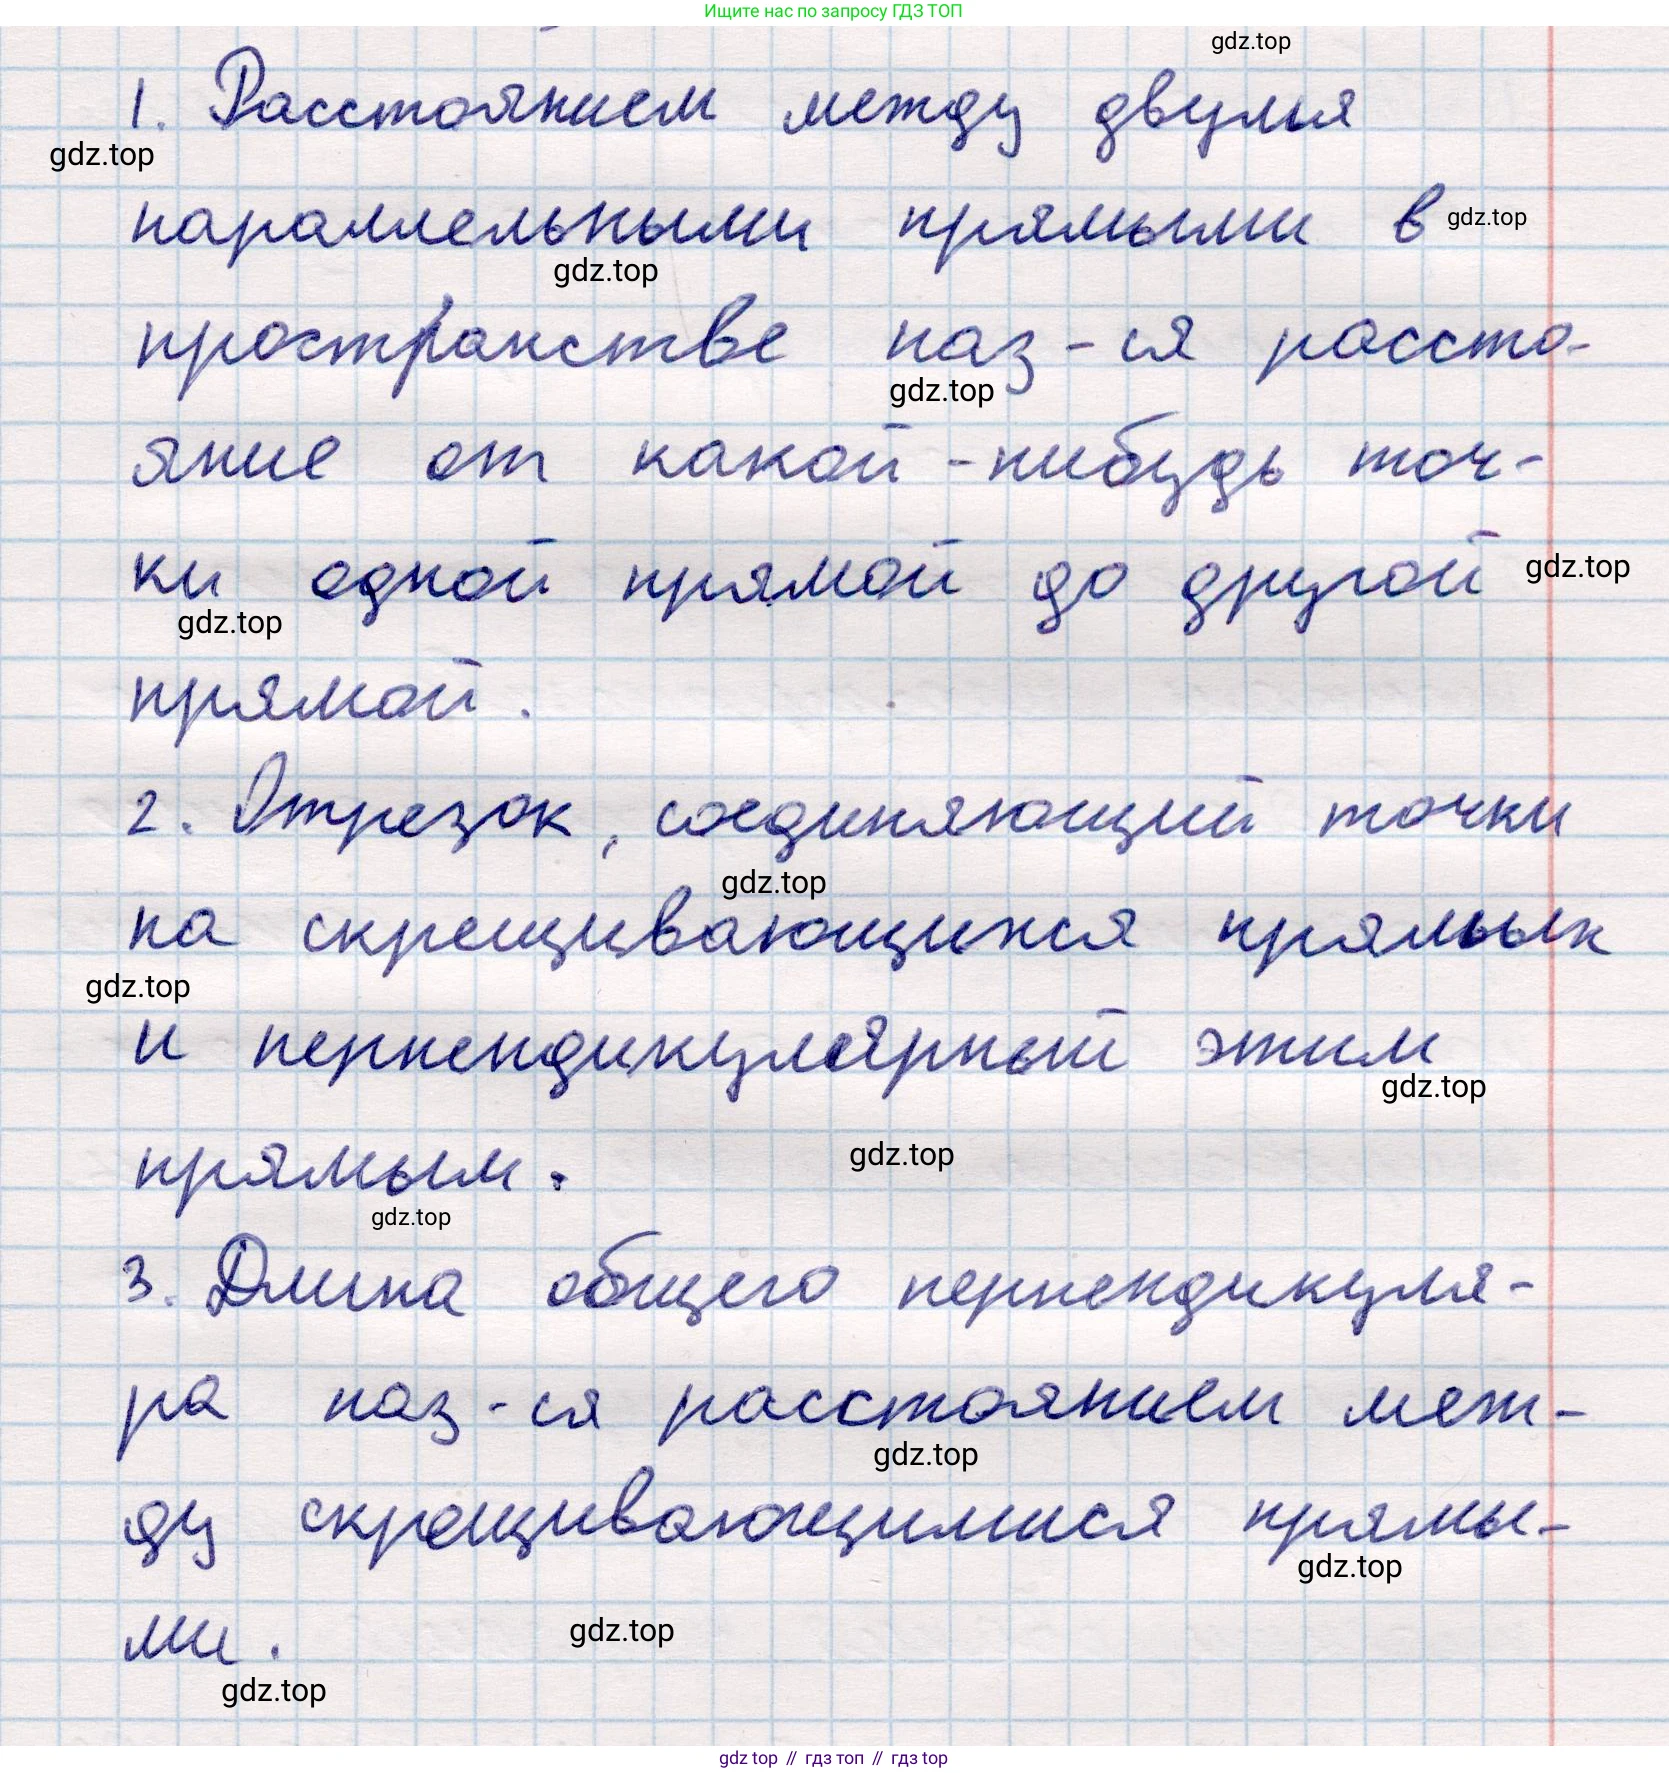 Ищите нас по запросу ГДЗ ТОП
gdz.top
1. Расстоянием между двумя
gdz.top
параллельными прямыми в
gdz.top
gdz.top
пространстве наз-ся рассто-
gdz.top
яние от какой-нибудь точ-
ки одной прямой до другой
gdz.top
gdz.top
прямой.
2. Отрезок, соединяющий точки
gdz.top
на скрещивающихся прямых
gdz.top
и перпендикулярный этим
gdz.top
прямым.
gdz.top
gdz.top
3. Длина общего перпендикуля-
ра наз-ся расстоянием меж-
gdz.top
ду скрещивающимися прямы-
gdz.top
ми.
gdz.top
gdz.top
gdz top // гдз топ // гдз top